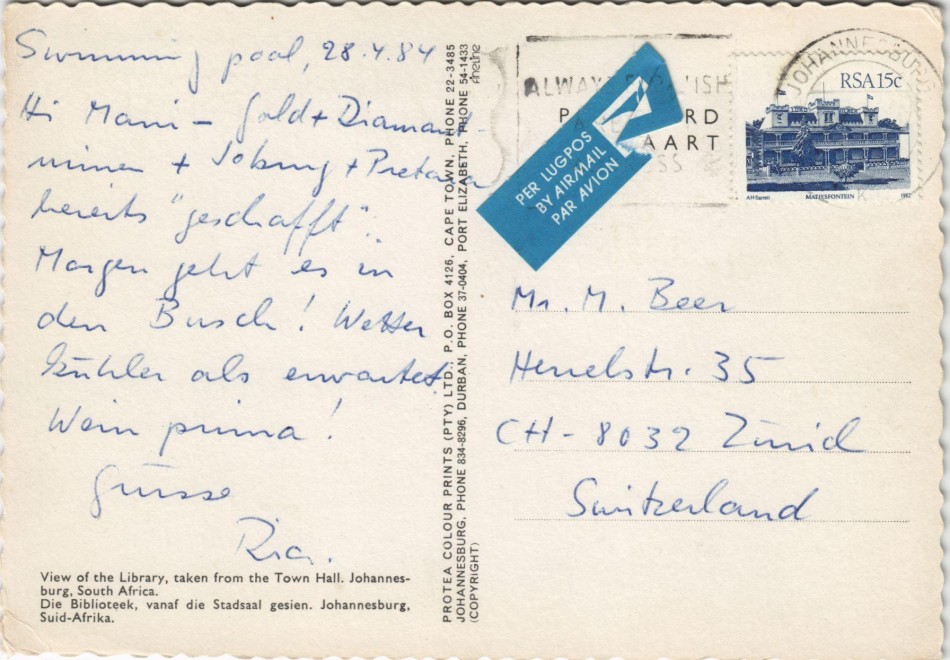 Swimming pool, 28.4.84
Hi Mani – Gold + Diamant-
minen + Joburg + Pretoria
bereits "geschafft".
Morgen geht es in
den Busch! Wetter
kühler als erwartet.
Wein prima!
Grüsse
View of the Library, taken from the Town Hall. Johannes-
burg, South Africa.
Die Biblioteek, vanaf die Stadsaal gesien. Johannesburg,
Suid-Afrika.
PROTEA COLOUR PRINTS (PTY) LTD.: P.O. BOX 4126, CAPE TOWN, PHONE 22-3485
JOHANNESBURG, PHONE 834-8296, DURBAN, PHONE 37-0404, PORT ELIZABETH, PHONE 54-1433
(COPYRIGHT)
ALWAYS
PER LUGPOS
BY AIRMAIL
PAR AVION
JOHANNESBURG
RSA 15c
MATJIESFONTEIN
1982
Mr. M. Beer
35
CH - 8032 Zürich
Switzerland